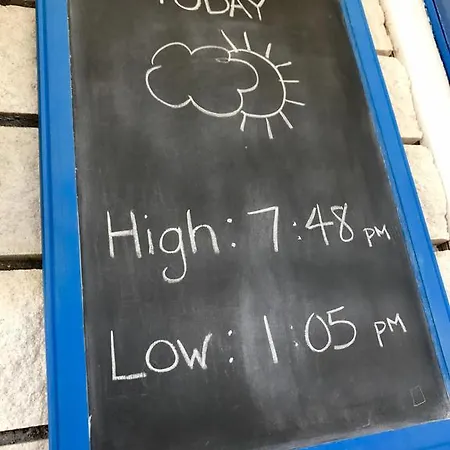 TODAY
High: 7:48 PM
Low: 1:05 PM